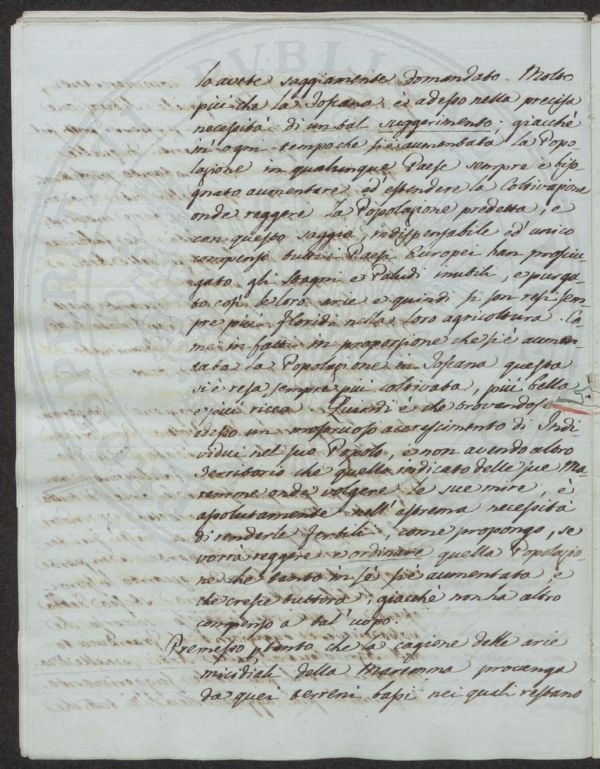 lo avete saggiamente domandato. Molto
più che la Toscana è adesso nella precisa
necessità di un tal suggerimento; giacchè
in ogni tempo che si è aumentata la Popo
lazione in qualunque Paese sempre è biso
gnato aumentare ed estendere la Coltivazione
onde reggere la Popolazione predetta, e
con questo saggio, indispensabile ed unico
compenso tutti i Paesi Europei han prosciu
gato gli Stagni e Paludi inutili, e purga
to così le loro arie e quindi si son resi sem
pre più floridi nella loro agricoltura. Co
me in fatti in proporzione che si è aumen
tata la Popolazione in Toscana questa
si è resa sempre più coltivata, più bella
e più ricca. Quindi è che trovandosi
adesso un mostruoso accrescimento di Indi
vidui nel suo Popolo, e non avendo altro
Territorio che quello indicato delle sue Ma
remme onde volgere le sue mire, è
assolutamente nell'estrema necessità
di renderle fertili, come propongo, se
vorrà reggere e ordinare quella Popolazio
ne che tanto in sè si è aumentata e
che cresce tuttora, giacchè non ha altro
compenso a tal'uopo.
Premesso pertanto che la cagione delle arie
micidiali della Maremma provenga
da quei terreni bassi nei quali restano